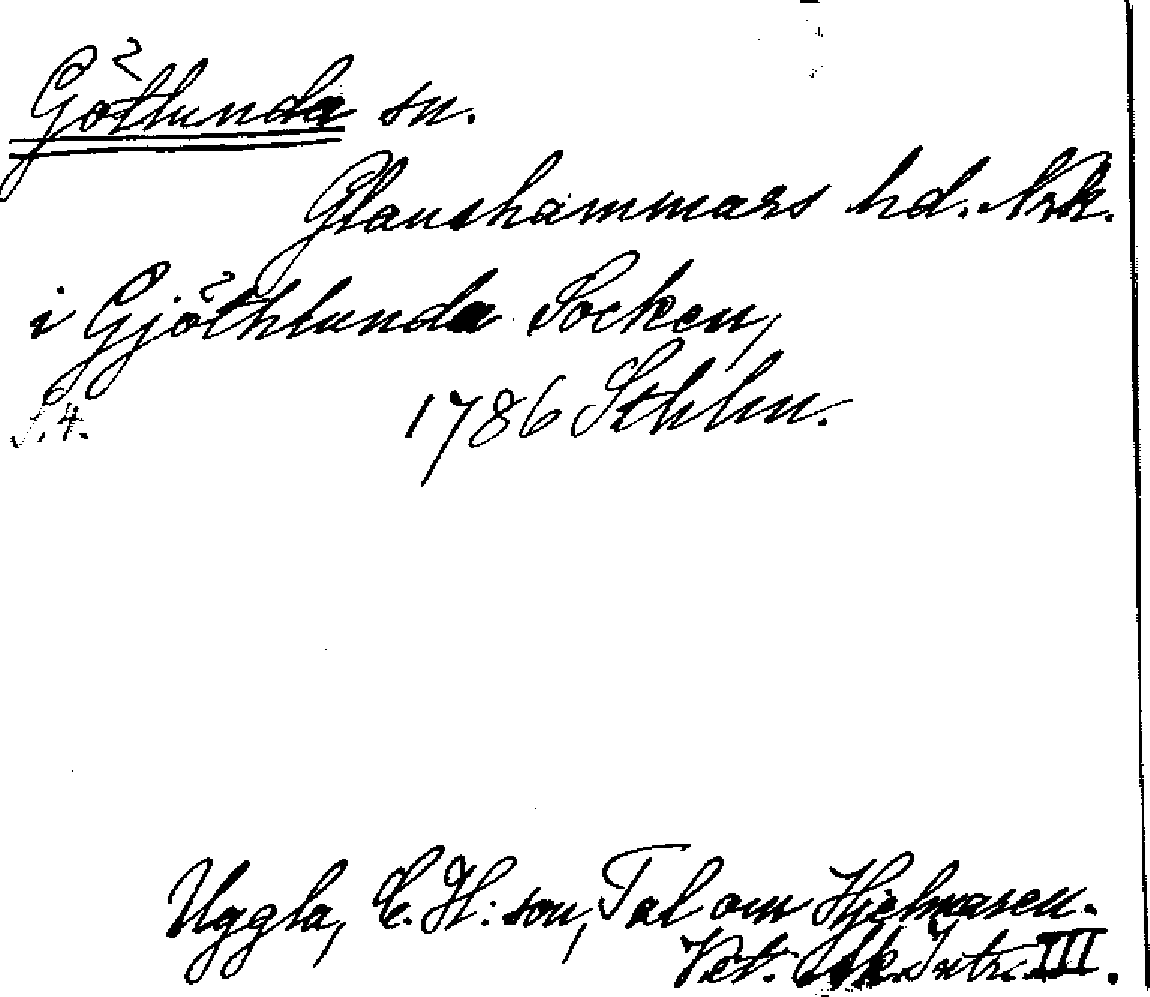 Götlunda sn.
Glanshammars hd. Nrk.
i Gjöthlunda Socken,
S. 4. 1786 Sthlm.
Uggla, C. H:son, Tal om Hjelmaren.
Vet. Ak. Intr. III.